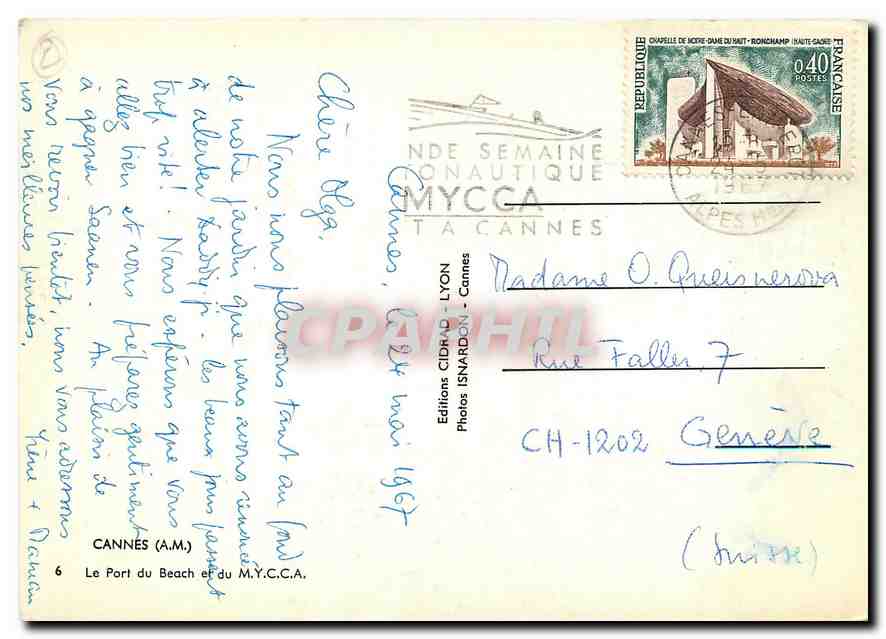 Cannes, le 24 mai 1967
Chère Olga,
Nous nous plaisons tant au fond
de notre jardin que nous avons renoncé
à alerter Daddyji. Les beaux jours passent
trop vite! Nous espérons que vous
allez bien et vous préparez gentiment
à gagner Saanen. Au plaisir de
vous revoir bientôt, nous vous adressons
nos meilleures pensées.
Irène + Maman
CANNES (A.M.)
6 Le Port du Beach et du M.Y.C.C.A.
Editions CIDRAD - LYON
Photos ISNARDON - Cannes
NDE SEMAINE
ONAUTIQUE
MYCCA
T A CANNES
CHAPELLE DE NOTRE-DAME DU HAUT - RONCHAMP (HAUTE-SAÔNE)
REPUBLIQUE
FRANCAISE
0,40
POSTES
ALPES Mmes
Madame O. Queisnerova
Rue Faller, 7
CH-1202 Genève
(Suisse)
CPAPHIL